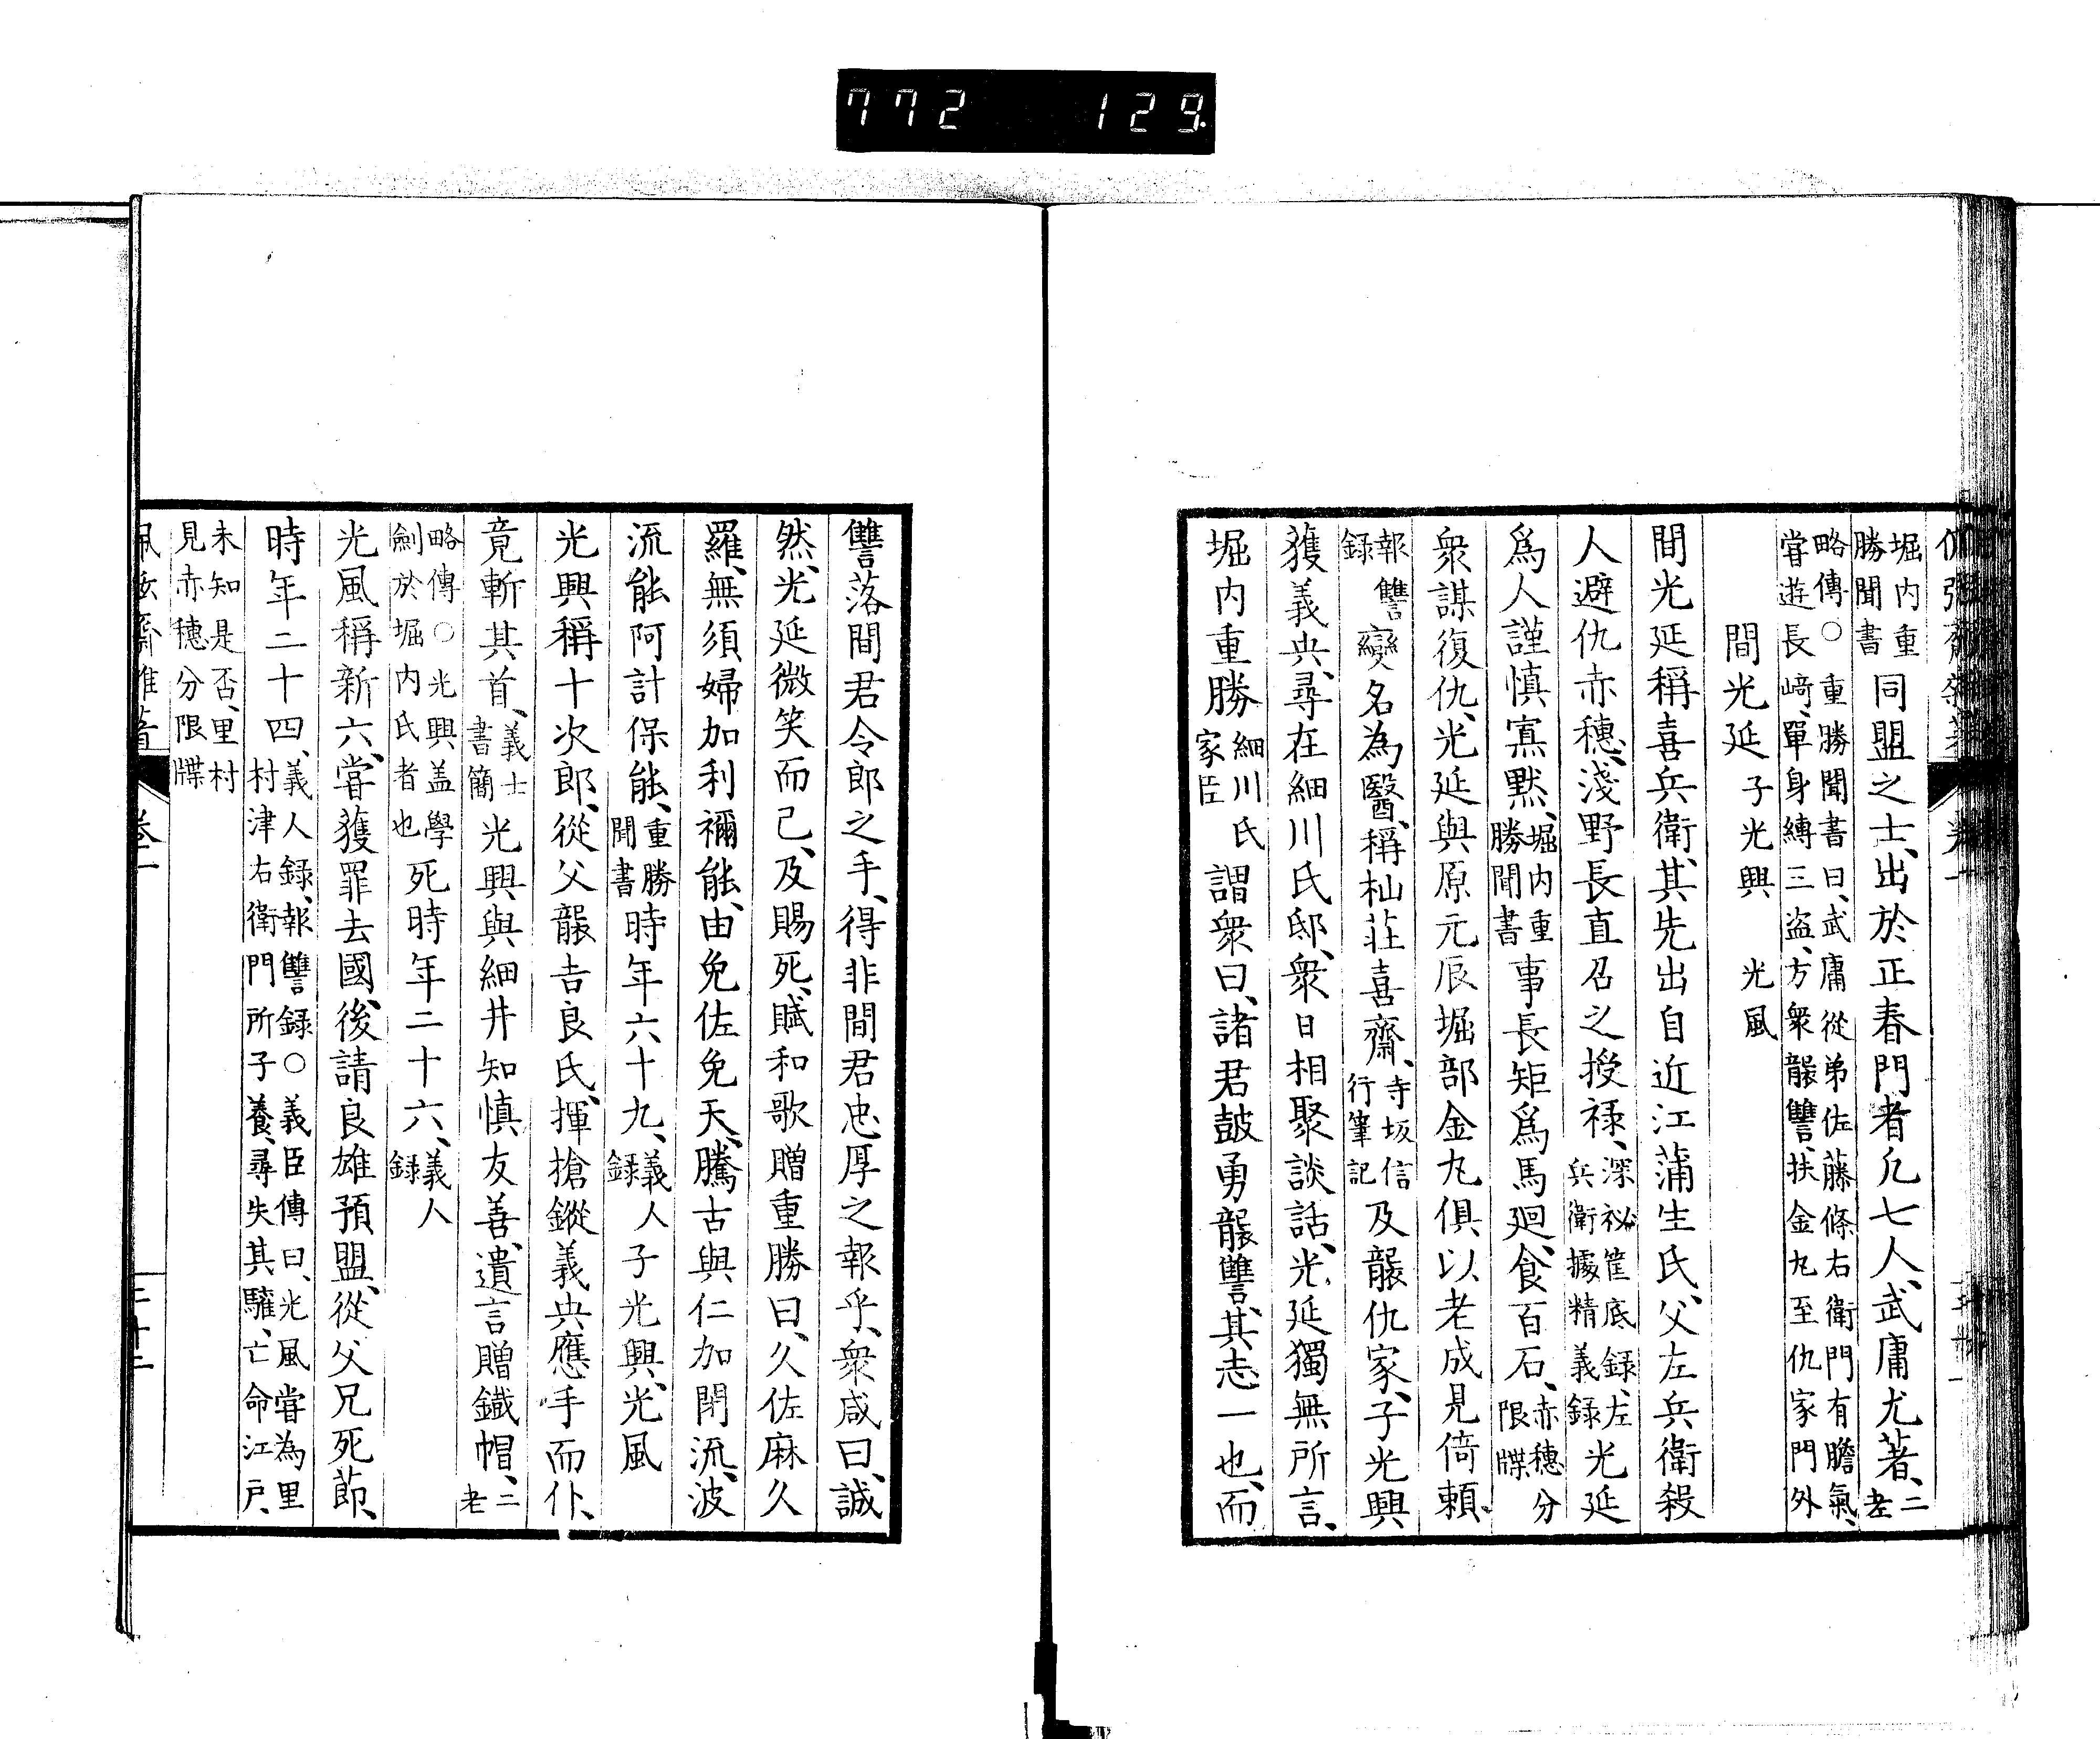 772 129
堀内重勝聞書同盟之士、出於正春門者凢七人、武庸尤著、二老
略傳○重勝聞書曰、武庸從弟佐藤條右衛門有膽氣、嘗遊長﨑、單身縛三盗、方衆襲讐、扶金丸至仇家門外
間光延 子光興 光風
間光延稱喜兵衛、其先出自近江蒲生氏、父左兵衛殺
人避仇赤穗、淺野長直召之授禄、深祕筐底録、左兵衛據精義録光延
爲人謹慎寡黙、堀内重勝聞書事長矩爲馬廻、食百石、赤穗分限牒
衆謀復仇、光延與原元辰堀部金丸俱以老成見倚頼、
報讐録變名為醫、稱杣莊喜齋、寺坂信行筆記及襲仇家、子光興
獲義央、尋在細川氏邸、衆日相聚談話、光延獨無所言、
堀内重勝細川氏家臣謂衆曰、諸君鼓勇襲讐、其志一也、而
讐落間君令郎之手、得非間君忠厚之報乎、衆咸曰、誠
然、光延微笑而已、及賜死、賦和歌贈重勝曰、久佐麻久
羅、無須婦加利禰能、由免佐免天、騰古與仁加閉流、波
流能阿計保能、重勝聞書時年六十九、義人録子光興、光風
光興稱十次郎、從父襲吉良氏、揮搶鏦義央應手而仆、
竟斬其首、義士書簡光興與細井知慎友善、遺言贈鐵帽、二老
略傳○光興盖學劍於堀内氏者也死時年二十六、義人録
光風稱新六、嘗獲罪去國、後請良雄預盟、從父兄死莭、
時年二十四、義人録、報讐録○義臣傳曰、光風嘗為里村津右衛門所子養、尋失其驩、亡命江戸、
未知是否、里村見赤穗分限牒
卷一